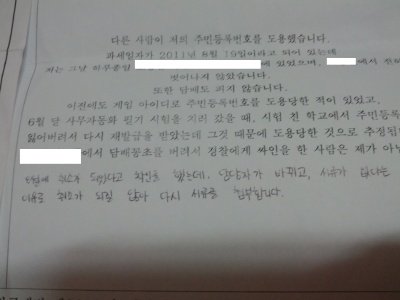 다른 사람이 저의 주민등록번호를 도용했습니다.
과세일자가 2011년 8월 19일이라고 되어 있는데
저는 그날 하루종일 에 있었으며, 에서 전
벗어나지 않았습니다.
또한 담배도 피지 않습니다.
이전에도 게임 아이디로 주민등록번호를 도용당한 적이 있었고,
6월 달 사무자동화 필기 시험을 치러 갔을 때, 시험 친 학교에서 주민등록
잃어버려서 다시 재발급을 받았는데 그것 때문에 도용당한 것으로 추정된
에서 담배꽁초를 버려서 경찰에게 싸인을 한 사람은 제가 아닙
취소가 되었다고 확인을 했는데, 담당자가 바뀌고, 서류가 없다는
이유로 취소가 되질 않아 다시 서류를 첨부합니다.